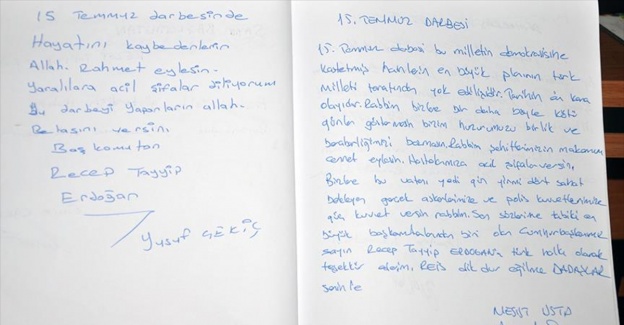 15 Temmuz darbesinde
Hayatını kaybedenlerin
Allah. Rahmet eylesin.
Yaralılara acil şifalar diliyorum
Bu darbeyi yapanların allah.
Belasını versin.
Baş komutan
Recep Tayyip
Erdoğan
Yusuf ÇEKİÇ
15. TEMMUZ DARBESİ
15. Temmuz darbesi bu milletin demokrasisine
hainlerin en büyük planının türk
milleti tarafından yok edilişidir. Tarihin en kara
olayıdır. Rabbim bizlere bir daha böyle kötü
günler göstermesin bizim huzurumuzu birlik ve
beraberliğimizi bozmasın. Rabbim şehitlerimizin mekanını
cennet eylesin. acil şifalar versin.
Bizlere bu vatanı yedi gün yirmi dört saat
bekleyen askerlerimize ve polis kuvvetlerimize
güç kuvvet versin rabbim. Son sözlerime tabiki en
büyük biri olan Cumhurbaşkanımız
sayın Recep Tayyip ERDOĞAN'a türk halkı olarak
teşekkür ederim. REİS dik dur eğilme DADAŞLAR
senin le
MESUT USTA